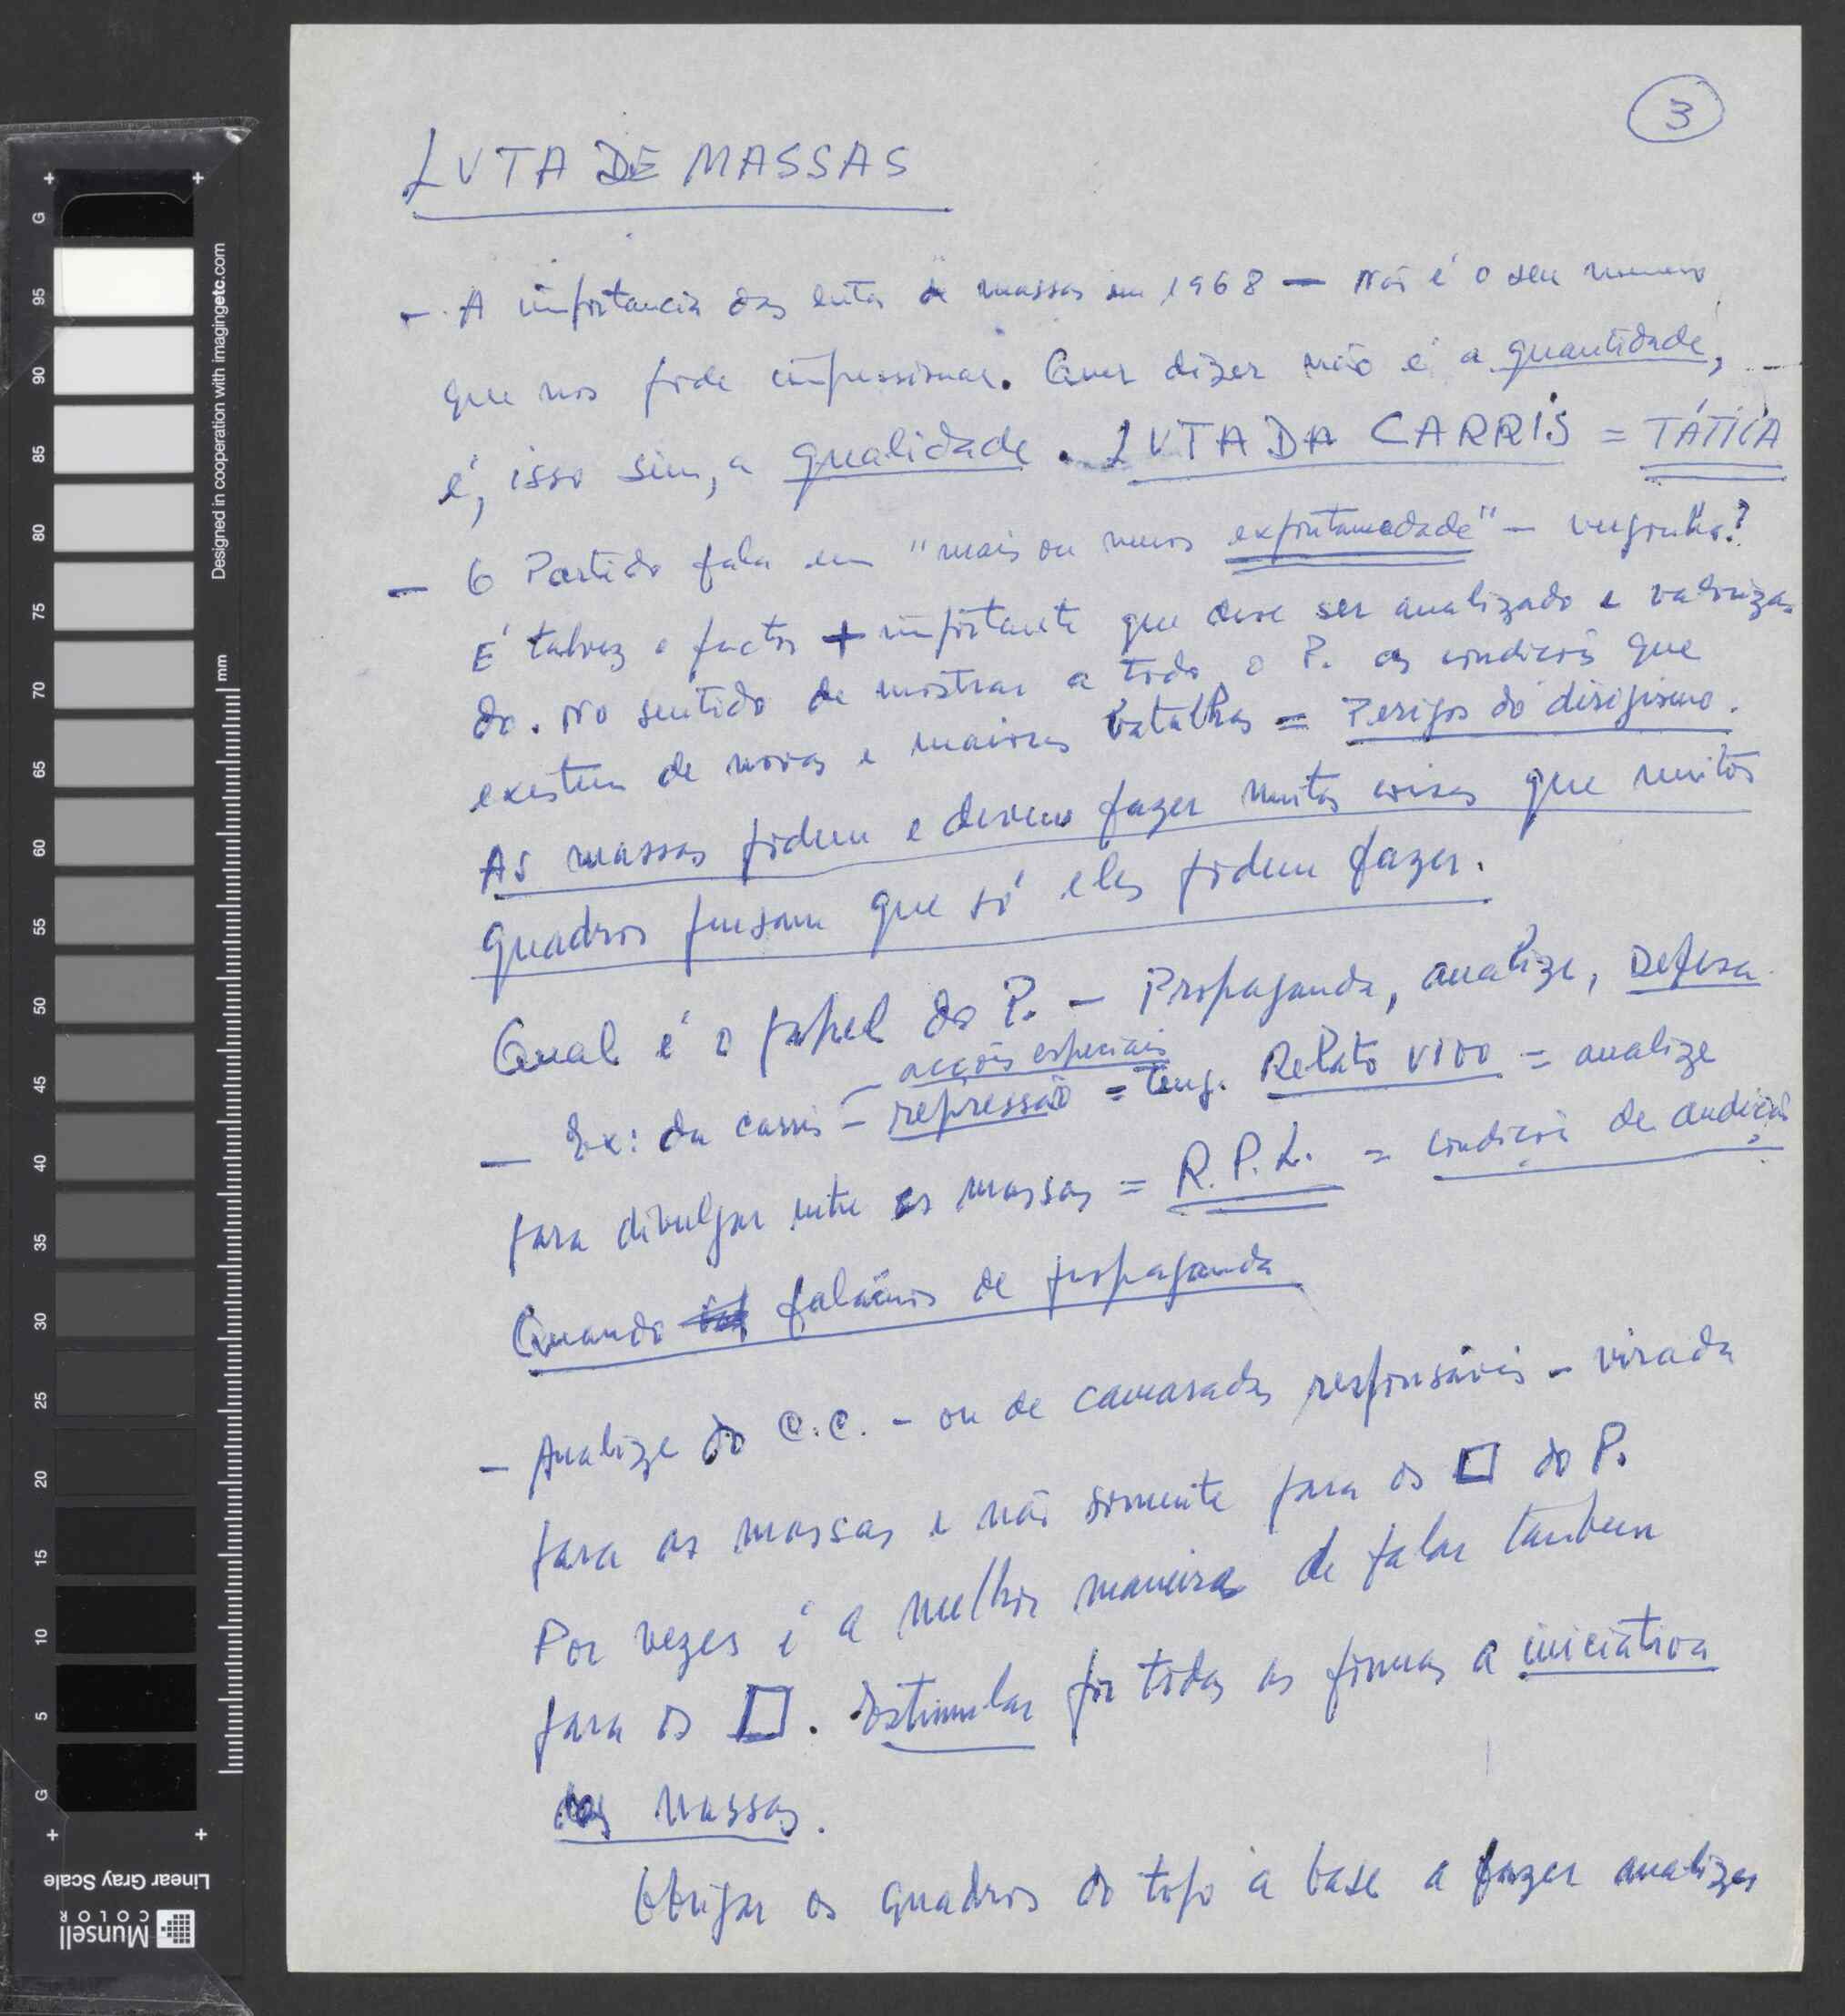 3
LUTA DE MASSAS
- A importancia das lutas de massas em 1968 — Não é o seu numero
que nos pode impressionar. Quer dizer não é a quantidade,
é, isso sim, a qualidade. LUTA DA CARRIS = TÁTICA
- O Partido fala em "mais ou menos expontaneadade" — vergonha?
É talvez o factor + importante que deve ser analizado e valoriza-
do. No sentido de mostrar a todo o P. as condições que
existem de novas e maiores batalhas = Perigos do dirigismo.
As massas podem e devem fazer muitas coisas que muitos
quadros pensam que só eles podem fazer.
Qual é o papel do P. — Propaganda, analize, Defesa
acções especiais
— Ex: da carris - repressão = Relato vivo = analize
para divulgar entre as massas = R.P.L. = condições de audição
Quando falámos de propaganda
- Analize do C.C. - ou de camaradas responsáveis - virada
para as massas e não somente para os □ do P.
Por vezes é a melhor maneira de falar tambem
para os □. Estimular por todas as formas a iniciativa
das massas.
Obrigar os quadros do topo à base a fazer analizes
Designed in cooperation with imagingetc.com
mm
G
95
90
85
80
75
70
65
60
55
50
45
40
35
30
25
20
15
10
5
G
Linear Gray Scale
Munsell
COLOR